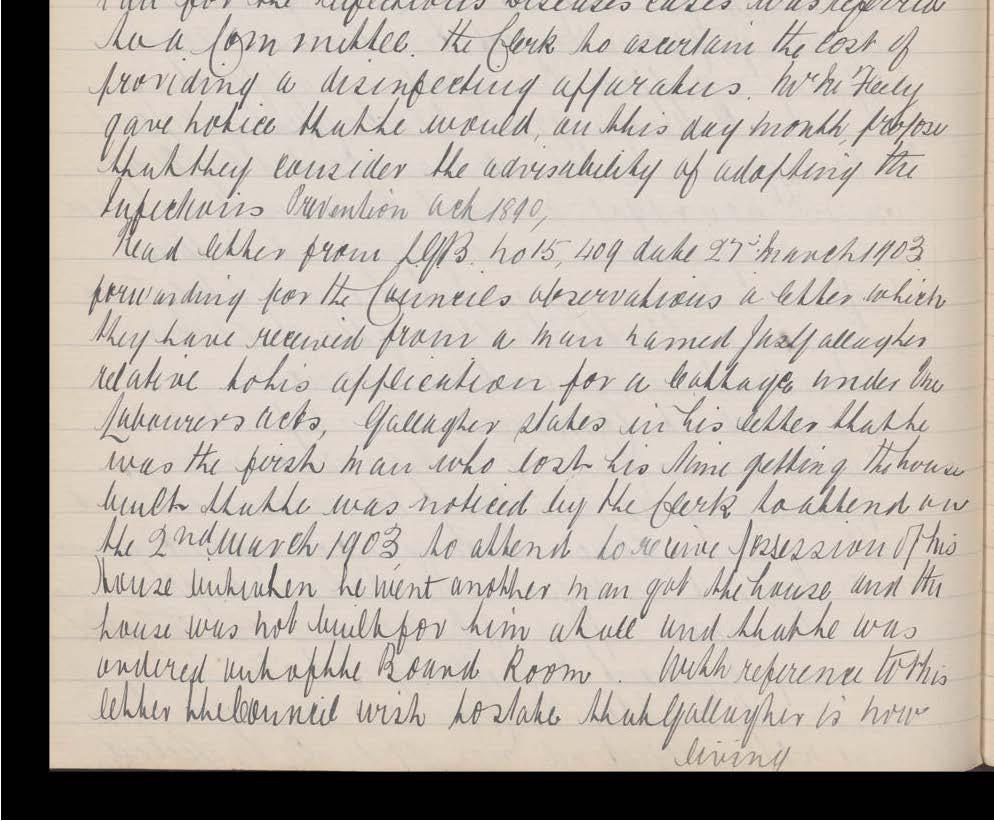 for the infectious diseases cases was referred
to a Committee. The Clerk to ascertain the cost of
providing a disinfecting apparatus. Mr McFeely
gave notice that he would, on this day month, propose
that they consider the advisability of adopting the
Infectious Prevention Act 1890,
Read letter from LGB. No 15,409 date 27th March 1903
forwarding for the Councils observations a letter which
they have received from a man named Jas Gallagher
relative to his application for a Cottage under the
Labourers acts, Gallagher states in his letter that he
was the first man who lost his time getting the house
built that he was noticed by the Clerk to attend on
the 2nd March 1903 to attend to receive possession of his
house but when he went another man got the house and the
house was not built for him at all and that he was
ordered out of the Board Room. With reference to this
letter the Council wish to state that Gallagher is now
living